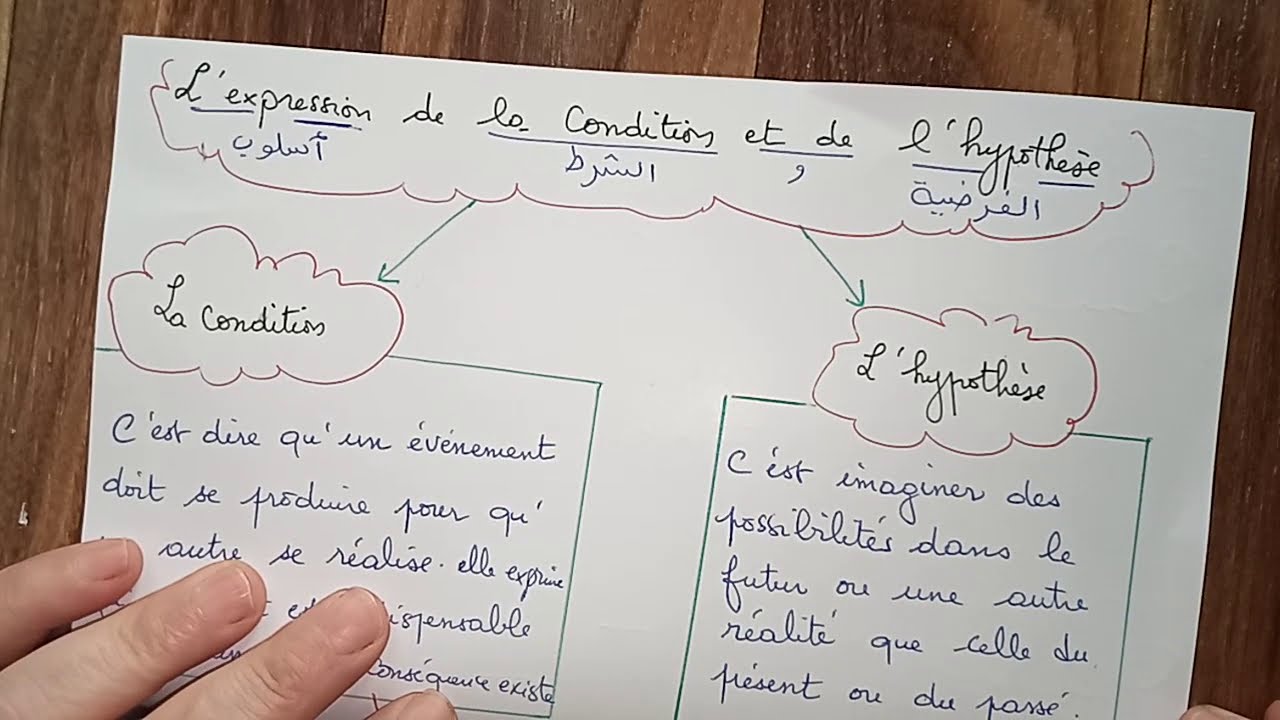 L'expression de la Condition et de l'hypothèse
أسلوب الشرط و الفرضية
La Condition
L'hypothèse
C'est dire qu'un événement
doit se produire pour qu'
autre se réalise. elle exprime
ispensable
conséquence existe
C'est imaginer des
possibilités dans le
futur ou une autre
réalité que celle du
présent ou du passé.